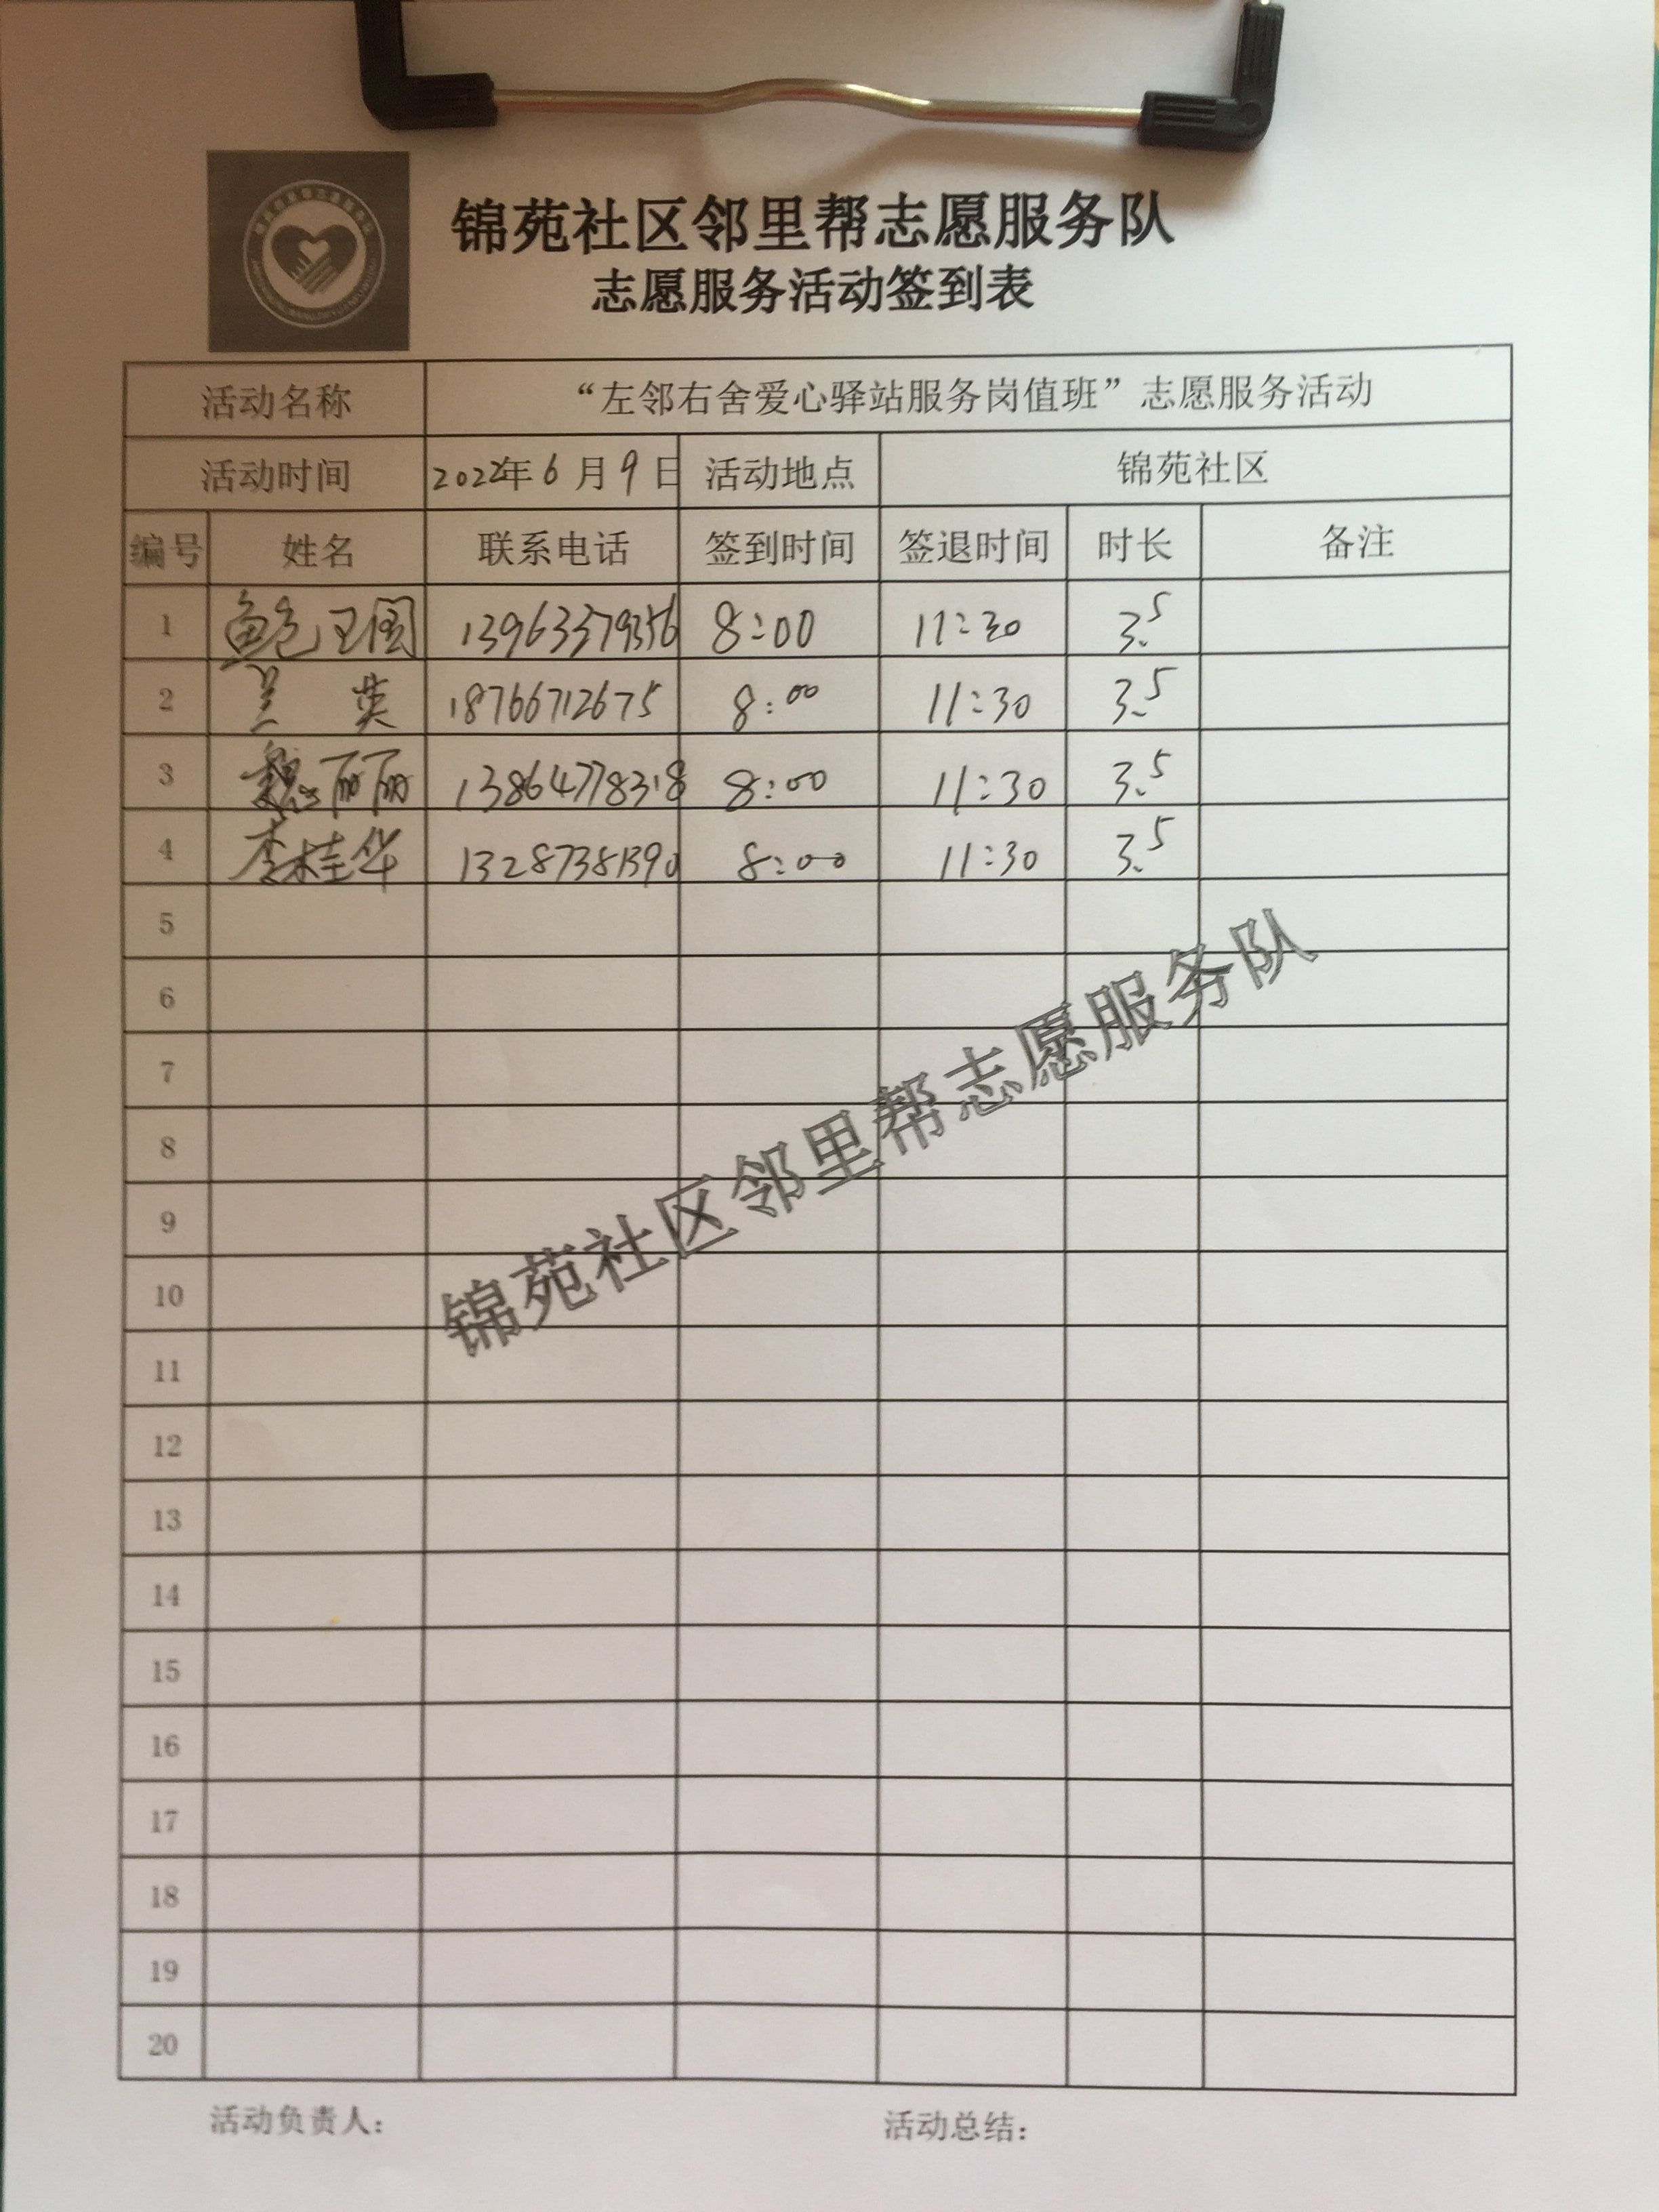 锦苑社区邻里帮志愿服务队
志愿服务活动签到表
活动名称 “左邻右舍爱心驿站服务岗值班”志愿服务活动
活动时间 2022年6月9日 活动地点 锦苑社区
编号 姓名 联系电话 签到时间 签退时间 时长 备注
1 鲍卫国 13963379356 8:00 11:30 3.5
2 兰英 18766712675 8:00 11:30 3.5
3 魏丽丽 13864778318 8:00 11:30 3.5
4 李桂华 13287381390 8:00 11:30 3.5
5
6
7
8
9
10
11
12
13
14
15
16
17
18
19
20
锦苑社区邻里帮志愿服务队
活动负责人: 活动总结: